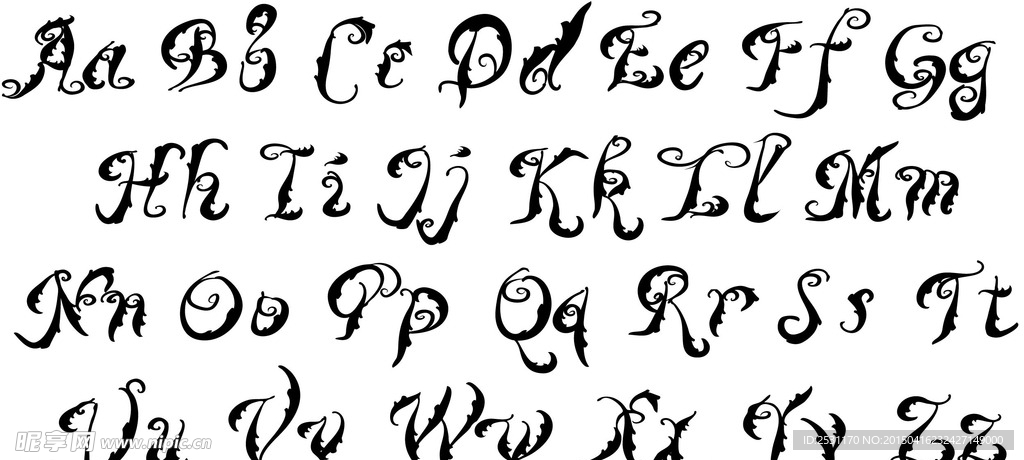 Aa Bb Cc Dd Ee Ff Gg
Hh Ii Jj Kk Ll Mm
Nn Oo Pp Qq Rr Ss Tt
Uu Vv Ww Xx Yy Zz
昵享网 www.nipic.cn
ID:2591170 NO:20150416232427149000